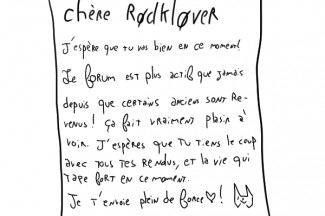 chère Rødkløver
J'espère que tu vas bien en ce moment
Le forum est plus actif que jamais
depuis que certains anciens sont re-
venus ! ça fait vraiment plaisir à
voir. J'espères que tu tiens le coup
avec tous tes rendus, et la vie qui
tape fort en ce moment.
Je t'envoie plein de force ♡ !